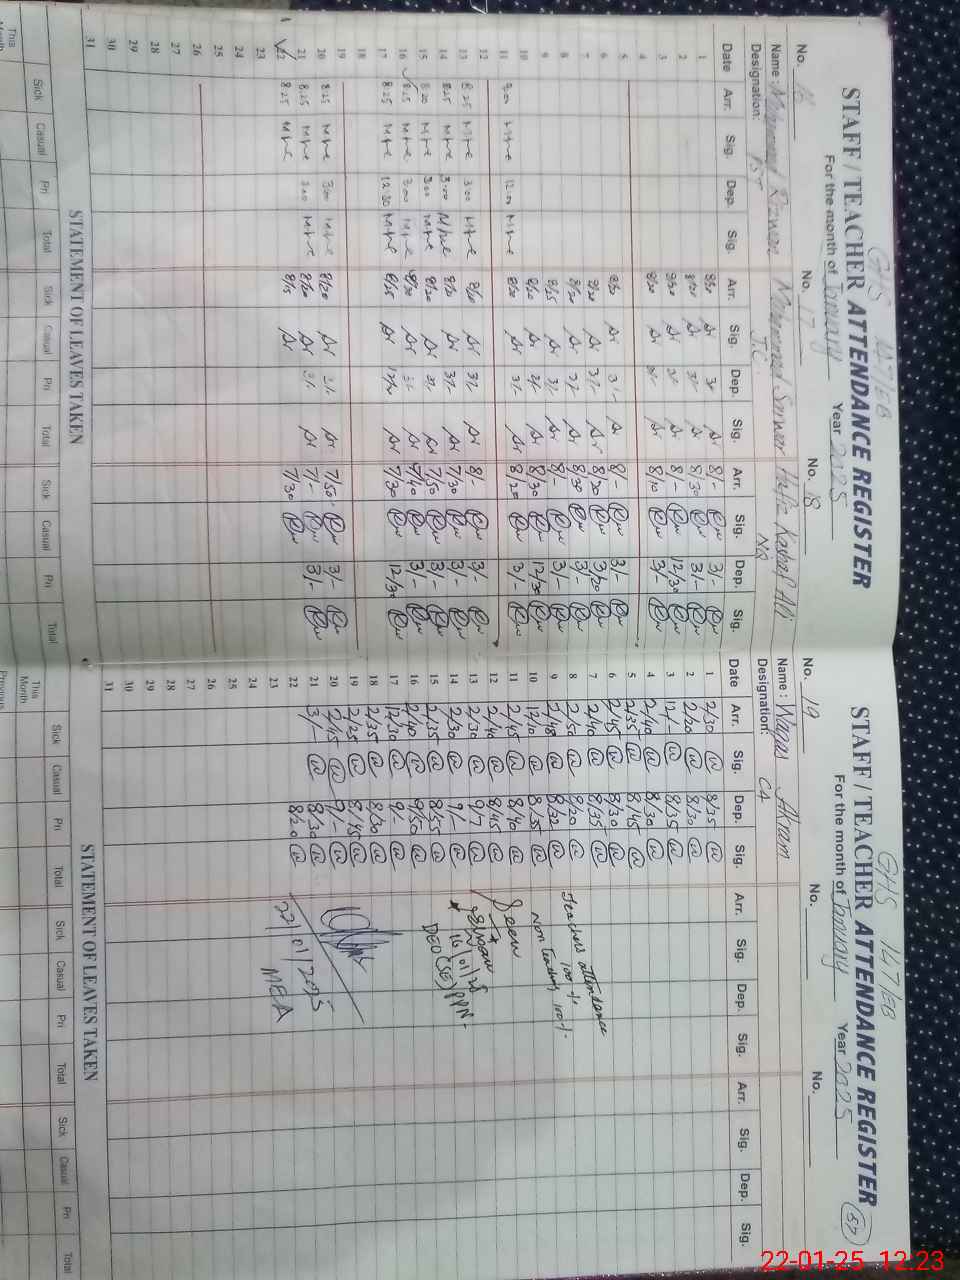 GHS 147/EB
STAFF / TEACHER ATTENDANCE REGISTER
For the month of January Year 2025
No. 16 No. 17 No. 18
Name : Muhammad Rizwan Muhammad Sarwar Hafiz Kashaf Ali
Designation: PST J.C. NQ
Date Arr. Sig. Dep. Sig. Arr. Sig. Dep. Sig. Arr. Sig. Dep. Sig.
1 8/30 3/- 8/- 3/-
2 8/20 3/- 8/30 3/-
3 8/30 3/- 8/- 12/30
4 8/30 3/- 8/10 3/-
5
6 8/30 3/- 8/- 3/-
7 8/20 3/- 8/20 3/20
8 8/20 3/- 8/30 3/-
9 8/25 3/- 8/- 3/-
10 8/20 8/30 12/30
11 9.00 12.00 8/30 3/- 8/20 3/-
12
13 8.25 3.00 8/20 3/- 8/- 3/-
14 8.25 3.00 8/20 3/- 7/30 3/-
15 8.20 3.00 8/20 3/- 7/50 3/-
16 8.25 3.00 8/30 3/- 7/40 3/-
17 8.25 12.30 8/25 7/30 12/30
18
19
20 8.25 3.00 8/20 3/- 7/50 3/-
21 8.25 3.00 8/20 3/- 7/- 3/-
22 8.25 8/15 7/30
23
24
25
26
27
28
29
30
31
STATEMENT OF LEAVES TAKEN
Sick Casual Pri Total Sick Casual Pri Total Sick Casual Pri Total
This Month
GHS 147/EB
57
STAFF / TEACHER ATTENDANCE REGISTER
For the month of January Year 2025
No. 19 No. No.
Name : Waqas Akram
Designation: C4
Date Arr. Sig. Dep. Sig. Arr. Sig. Dep. Sig. Arr. Sig. Dep. Sig.
1 2/30 8/35
2 2/20 8/30
3 12/- 8/35
4 2/40 8/30
5 2/35 8/45
6 2/45 8/30
7 2/40 8/35
8 2/50 8/20
9 2/48 8/32
10 12/10 8/55
11 2/45 8/40
12 2/40 8/45
13 2/30 9/7
14 2/30 9/-
15 2/35 8/55
16 2/40 9/50
17 12/30 9/-
18 2/35 8/30
19 2/25 8/45
20 2/45 9/-
21 3/- 8/30
22 8/20
23
24
25
26
27
28
29
30
31
Teachers attendance
100%
Non teaching 100%
Seen
16/01/25
DEO (SE) PPN
22/01/2025
MEA
STATEMENT OF LEAVES TAKEN
Sick Casual Pri Total Sick Casual Pri Total Sick Casual Pri Total
This Month
Previous
22-01-25 12:23